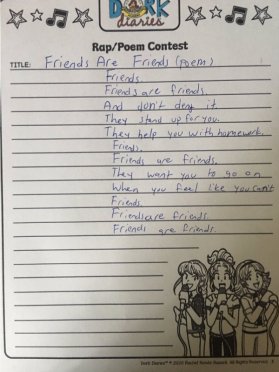 DORK
diaries
Rap/Poem Contest
TITLE: Friends Are Friends (poem)
Friends.
Friends are friends.
And don't deny it.
They stand up for you.
They help you with homework.
Friends.
Friends are friends.
They want you to go on
when you feel like you can't
Friends.
Friends are friends.
Friends are friends.